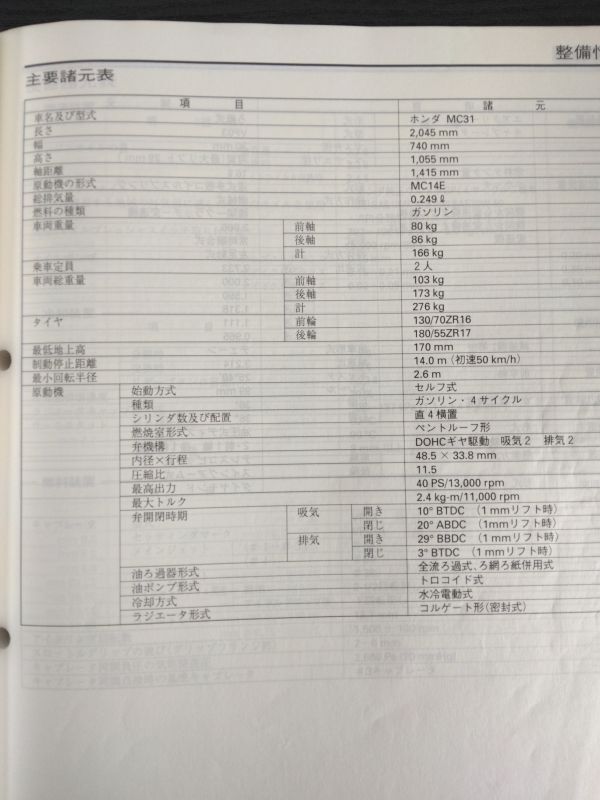 整備情
主要諸元表
項 目 諸 元
車名及び型式 ホンダ MC31
長さ 2,045 mm
幅 740 mm
高さ 1,055 mm
軸距離 1,415 mm
原動機の形式 MC14E
総排気量 0.249 ℓ
燃料の種類 ガソリン
車両重量 前軸 80 kg
後軸 86 kg
計 166 kg
乗車定員 2 人
車両総重量 前軸 103 kg
後軸 173 kg
計 276 kg
タイヤ 前輪 130/70ZR16
後輪 180/55ZR17
最低地上高 170 mm
制動停止距離 14.0 m (初速50 km/h)
最小回転半径 2.6 m
原動機 始動方式 セルフ式
種類 ガソリン・4サイクル
シリンダ数及び配置 直4横置
燃焼室形式 ペントルーフ形
弁機構 DOHCギヤ駆動 吸気2 排気2
内径×行程 48.5 × 33.8 mm
圧縮比 11.5
最高出力 40 PS/13,000 rpm
最大トルク 2.4 kg-m/11,000 rpm
弁開閉時期 吸気 開き 10° BTDC (1mmリフト時)
閉じ 20° ABDC (1mmリフト時)
排気 開き 29° BBDC (1mmリフト時)
閉じ 3° BTDC (1mmリフト時)
油ろ過器形式 全流ろ過式、ろ網ろ紙併用式
油ポンプ形式 トロコイド式
冷却方式 水冷電動式
ラジエータ形式 コルゲート形(密封式)